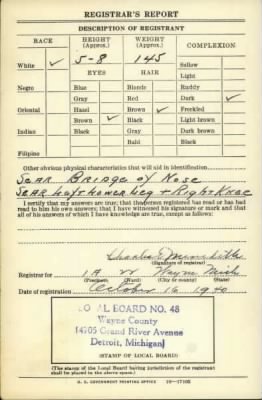 REGISTRAR'S REPORT
DESCRIPTION OF REGISTRANT
RACE HEIGHT (Approx.) WEIGHT (Approx.) COMPLEXION
White ✓ 5-8 145 Sallow
EYES HAIR Light
Negro Blue Blonde Ruddy
Gray Red Dark ✓
Oriental Hazel Brown ✓ Freckled
Brown ✓ Black Light brown
Indian Black Gray Dark brown
Bald Black
Filipino
Other obvious physical characteristics that will aid in identification
Scar Bridge of Nose
Scar Left Lower Leg + Right Knee
I certify that my answers are true; that the person registered has read or has had
read to him his own answers; that I have witnessed his signature or mark and that
all of his answers of which I have knowledge are true, except as follows:
Charles
(Signature of registrar)
Registrar for 1 A Wayne Mich
(Precinct) (Ward) (City or county) (State)
Date of registration October 16 1940
LOCAL BOARD NO. 48
Wayne County
14905 Grand River Avenue
Detroit, Michigan
(STAMP OF LOCAL BOARD)
(The stamp of the Local Board having jurisdiction of the registrant
shall be placed in the above space.)
U. S. GOVERNMENT PRINTING OFFICE 16—17105